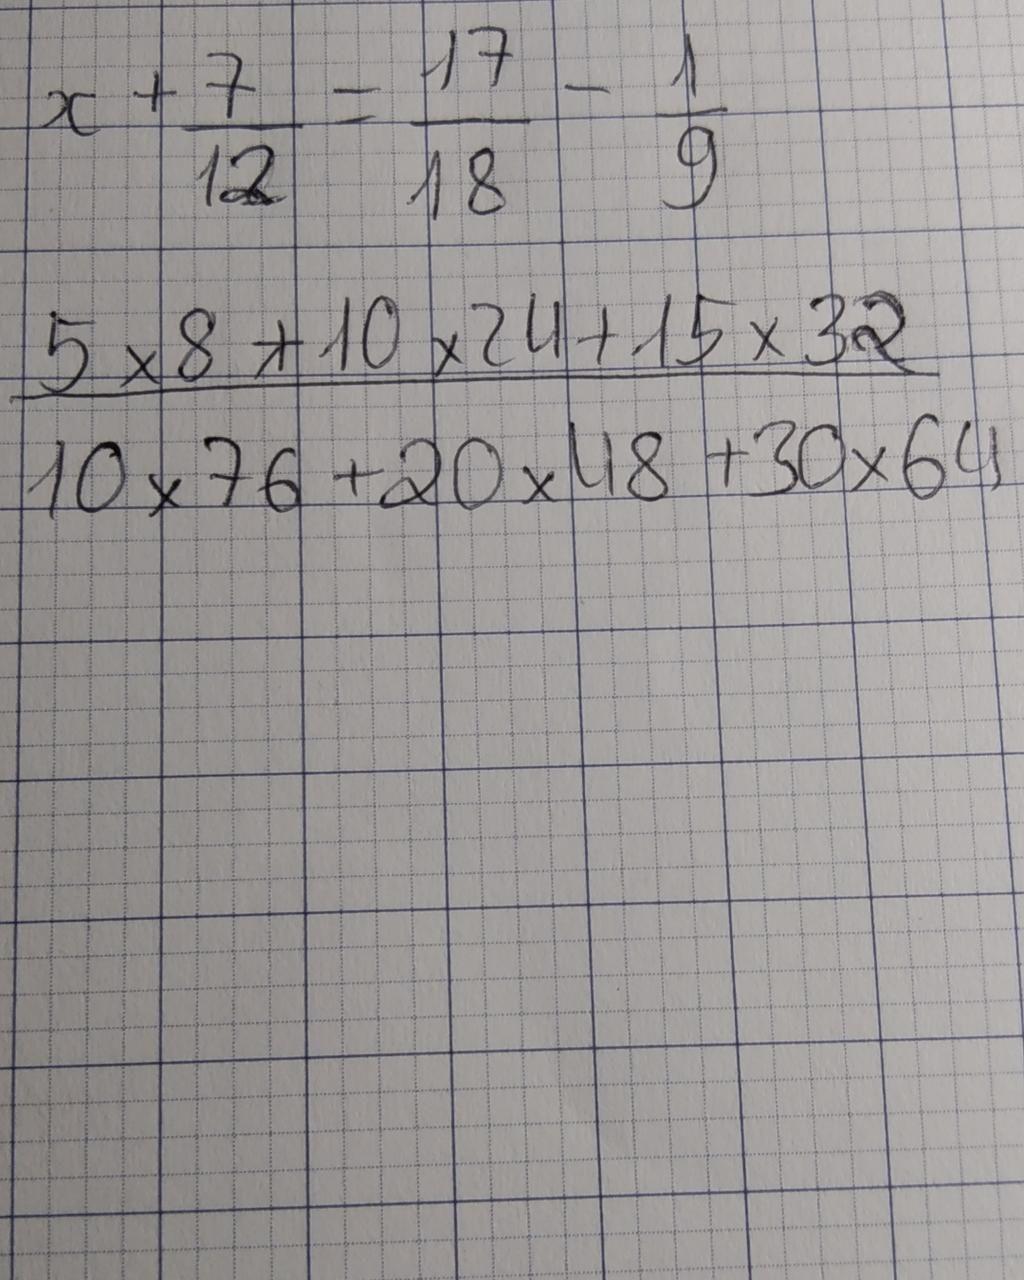 x + 7/12 = 17/18 - 1/9
5 x 8 + 10 x 24 + 15 x 32
10 x 76 + 20 x 48 + 30 x 64